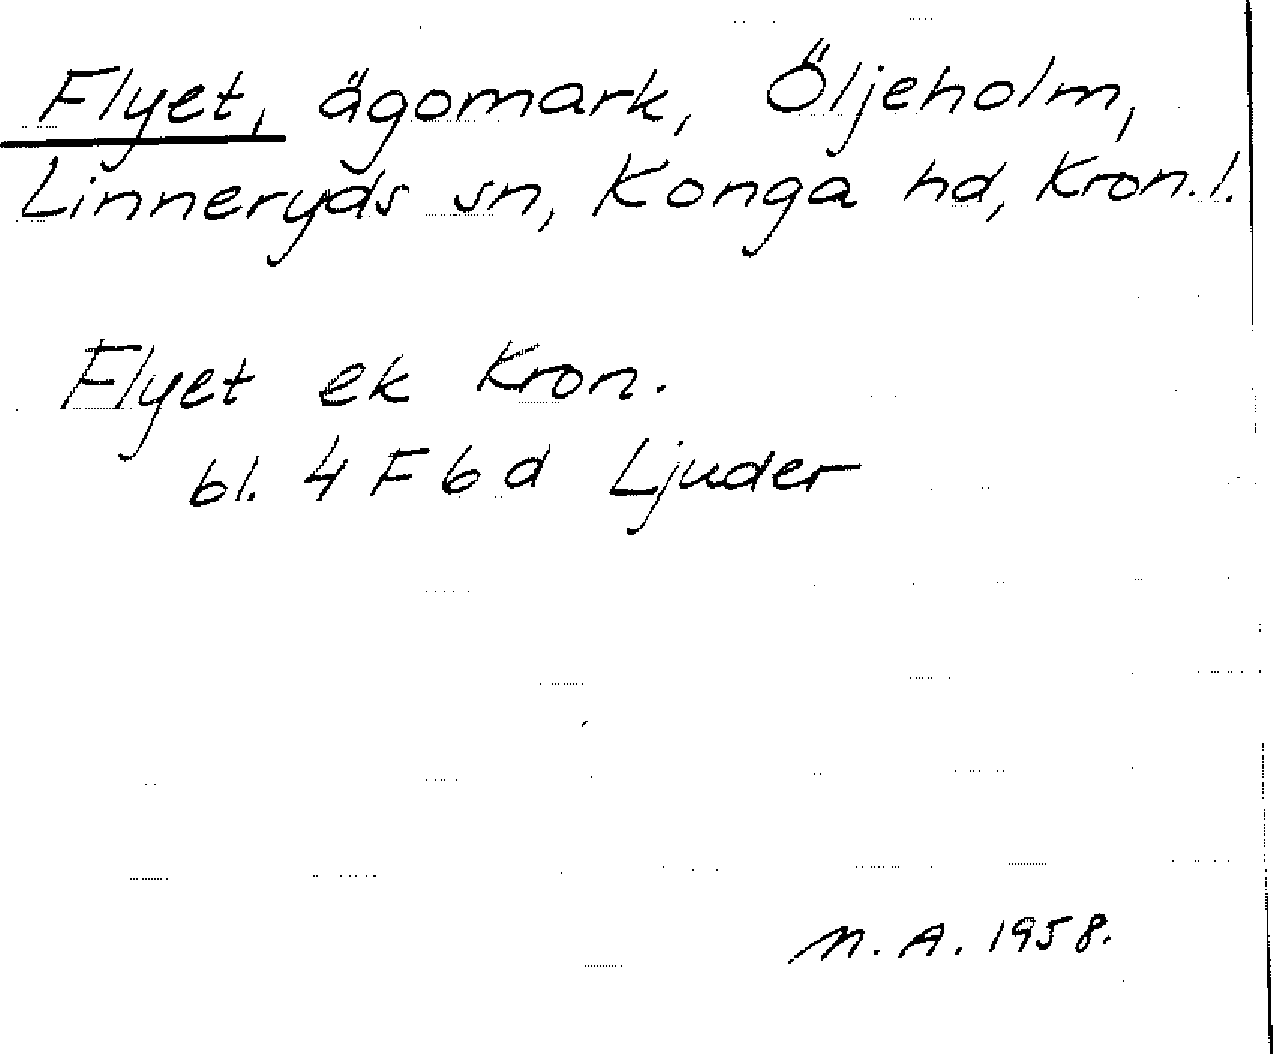 Flyet, ägomark, Öljeholm,
Linneryds sn, Konga hd, Kron. l.
Flyet ek Kron.
bl. 4 F 6 d Ljuder
N. A. 1958.